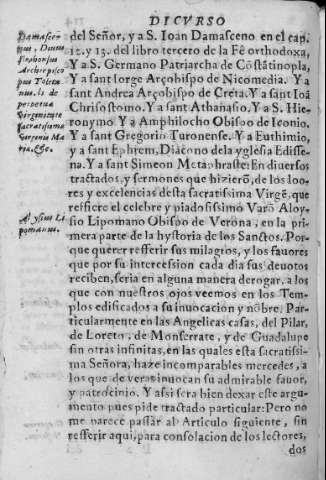 DICVRSO
del Señor, y a S. Ioan Damasceno en el cap.
12. y 13. del libro tercero de la Fè orthodoxa,
Y a S. Germano Patriarcha de Cõstãtinopla,
Y a sant Iorge Arçobispo de Nicomedia. Y a
sant Andrea Arçobispo de Creta. Y a sant Ioã
Chrisostomo. Y a sant Athanasio. Y a S. Hie-
ronymo. Y a Amphilocho Obispo de Iconio.
Y a sant Gregorio Turonense. Y a Euthimio,
y a sant Ephrem, Diacono dela yglesia Edisse-
na. Y a sant Simeon Metaphraste: En diuersos
tractados, y sermones que hizierõ, de los loo-
res y excelencias desta sacratissima Virgẽ, que
resfiere el celebre y piadosissimo Varõ Aloy-
sio Lipomano Obispo de Verona, en la pri-
mera parte de la hystoria de los Sanctos. Por-
que querer resferir sus milagros, y los fauores
que por su intercession cada dia sus deuotos
reciben, seria en alguna manera derogar, a los
que con nuestros ojos veemos en los Tem-
plos edificados a su inuocacion y nõbre. Par-
ticularmente en las Angelicas casas, del Pilar,
de Loreto, de Monserrate, y de Guadalupe
sin otras infinitas, en las quales esta sacratissi-
ma Señora, haze incomparables mercedes, a
los que de veras inuocan su admirable fauor,
y patrocinio. Y assi sera bien dexar este argu-
mento pues pide tractado particular: Pero no
me parece passar al Articulo siguiente, sin
resferir aqui, para consolacion de los lectores,
dos
Damascen-
Archiepisco
pus Toleta
nus, li. de
perpetua
Virginitate
Sacratissima
Aloysius Li
pomanus.